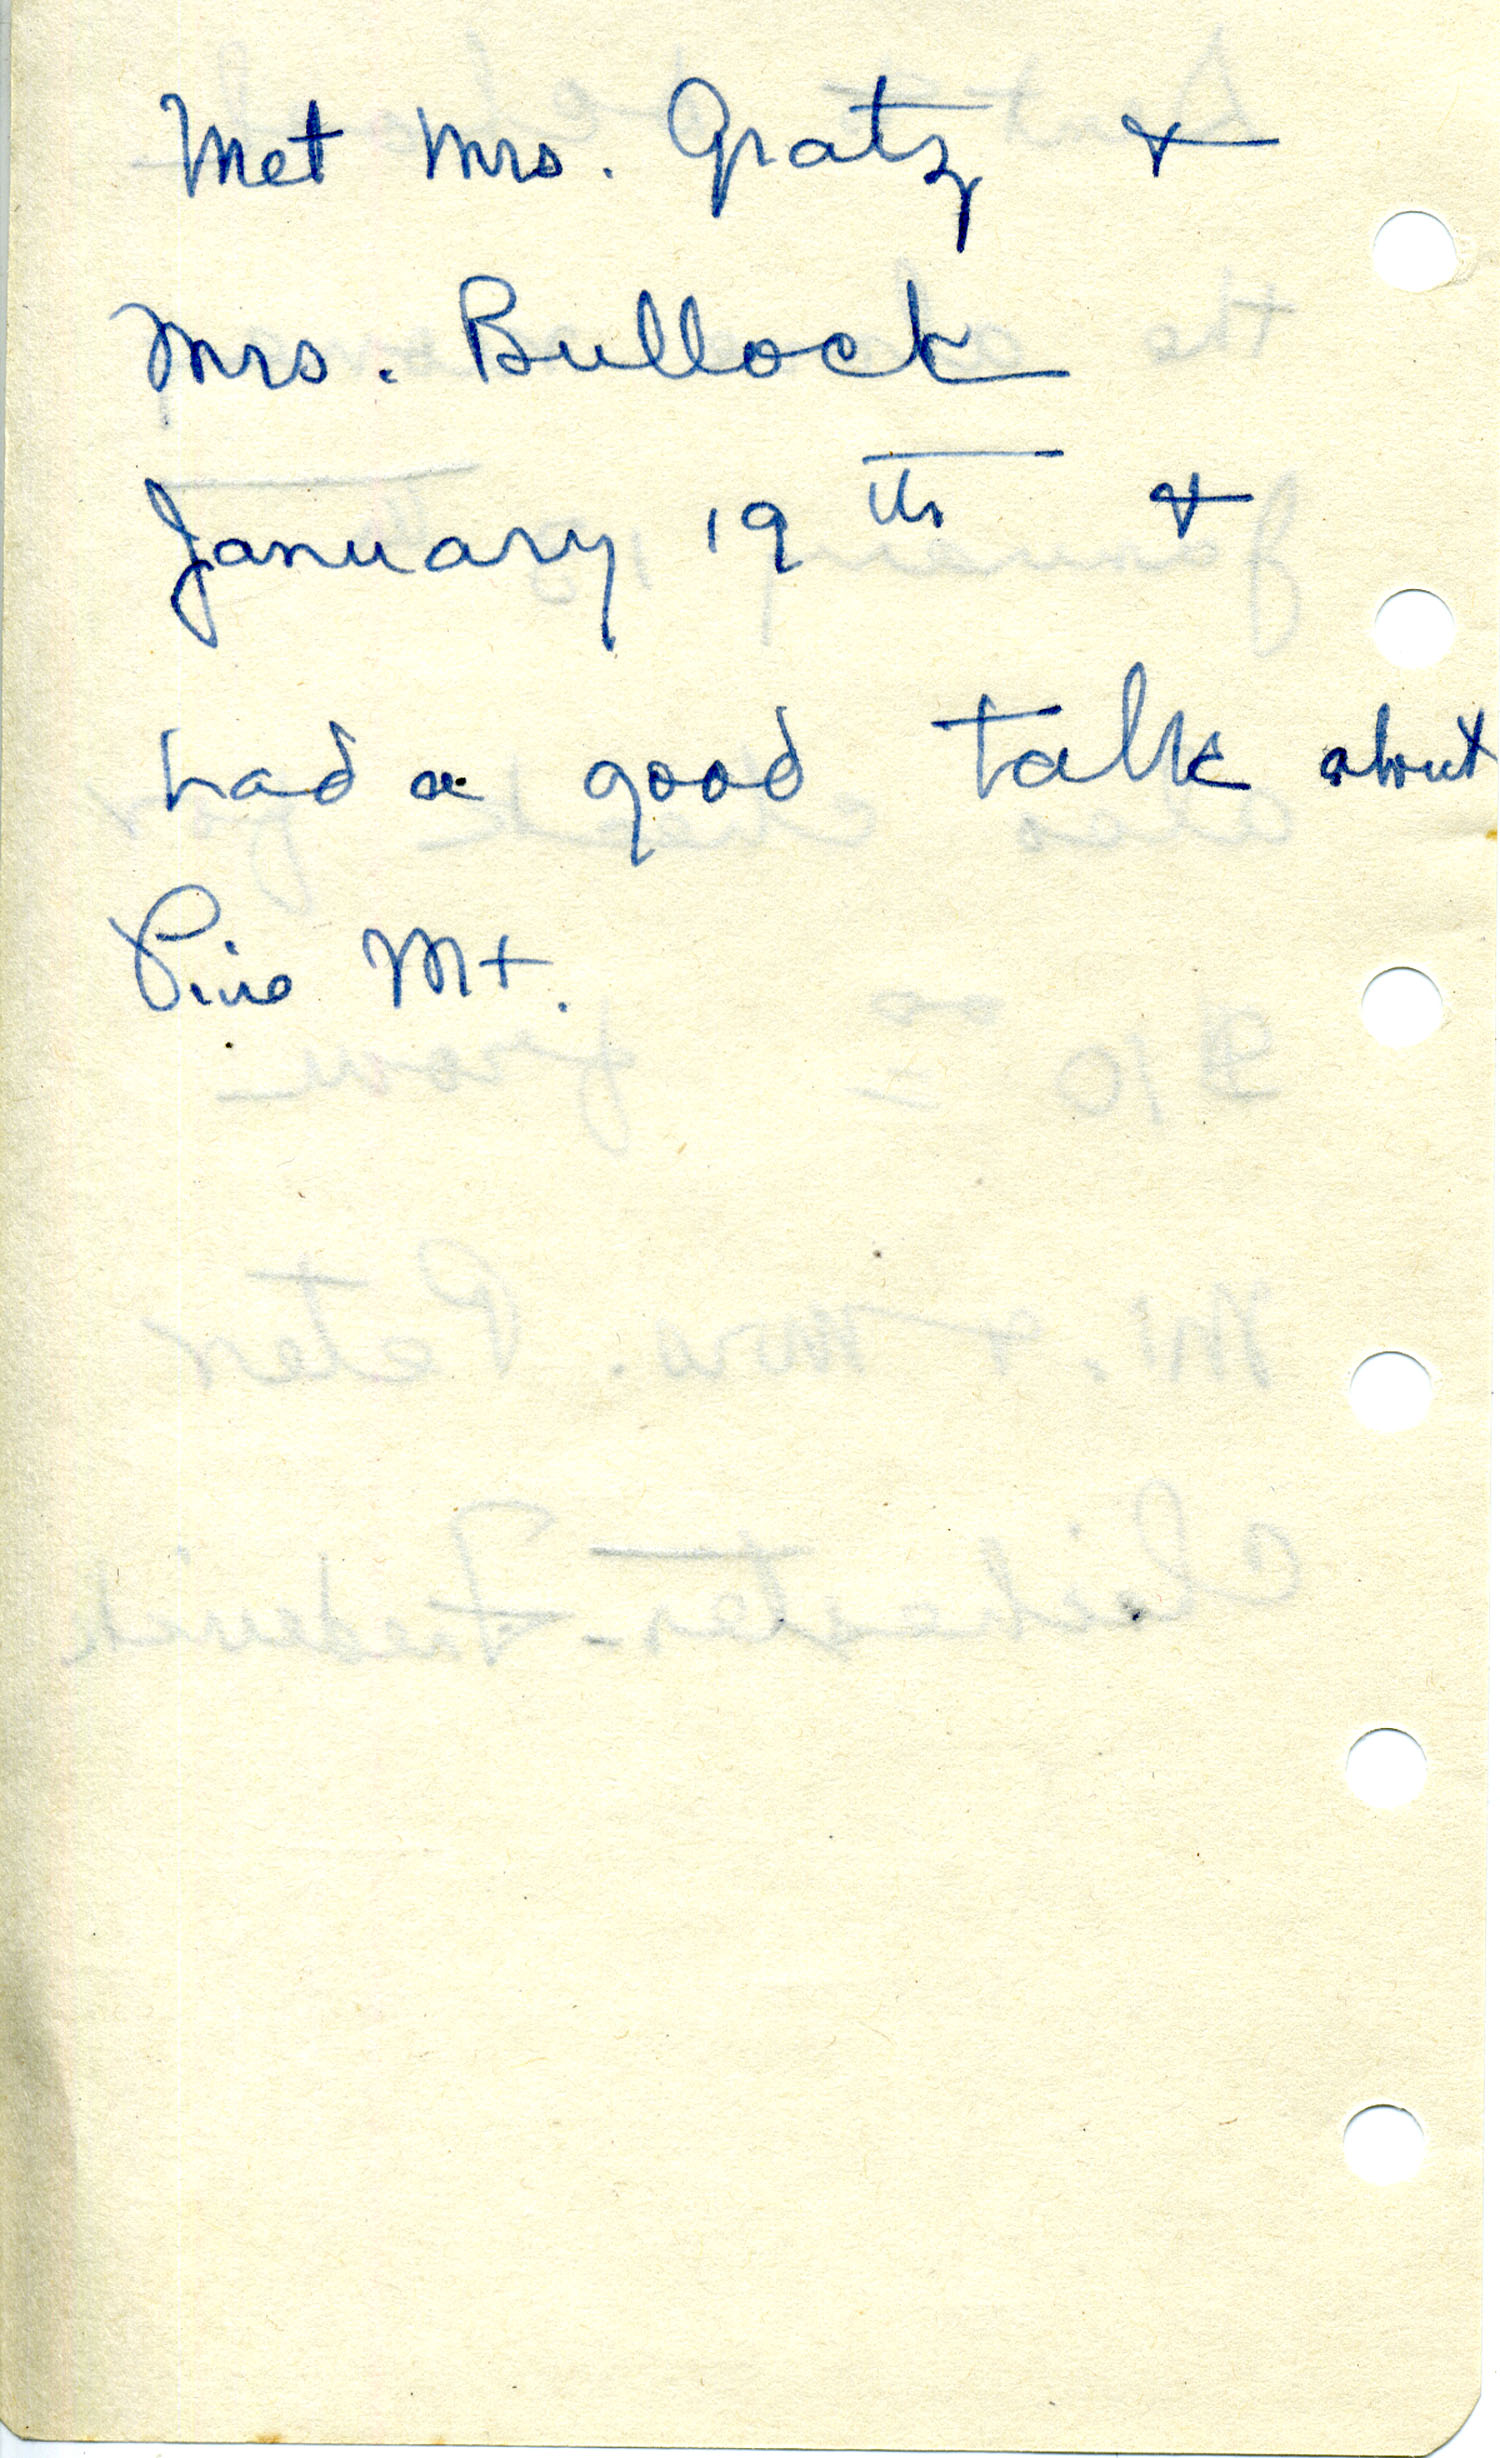 Met Mrs. Gratz &
Mrs. Bullock
January 19th &
had a good talk about
Pine Mt.